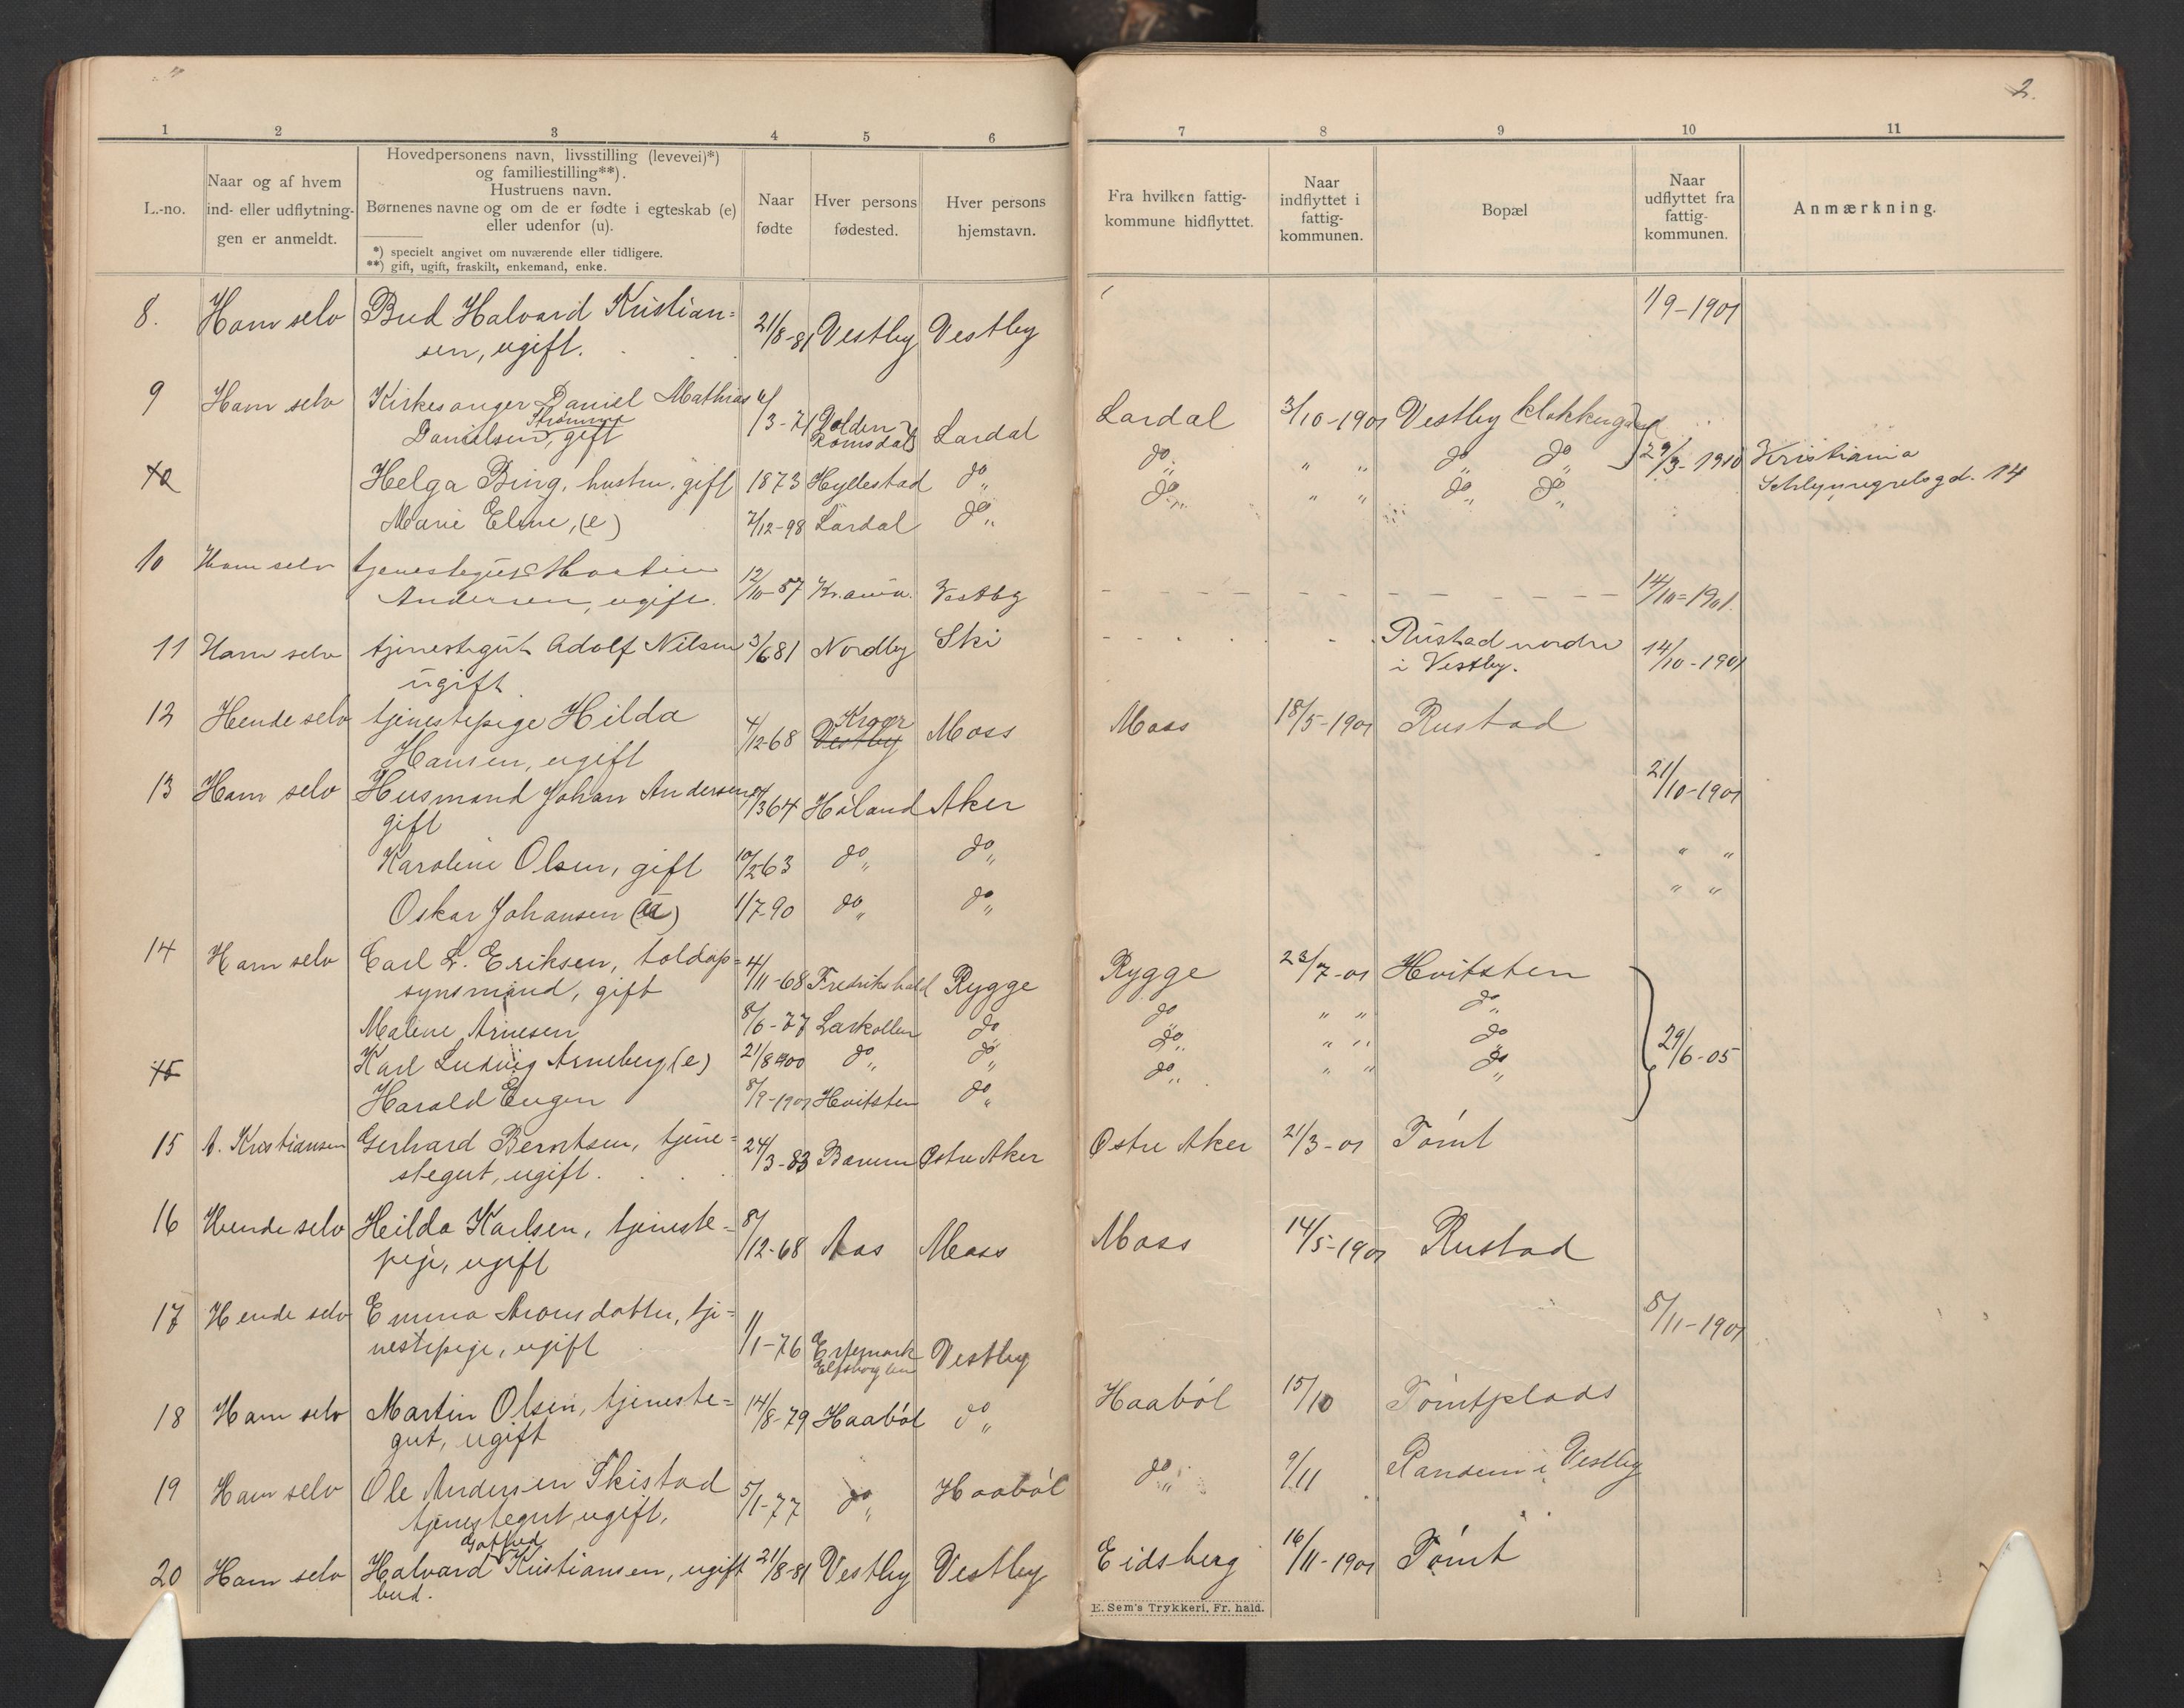 2.
1 2 3 4 5 6 7 8 9 10 11
L.-no.
Naar og af hvem
ind- eller udflytnin-
gen er anmeldt.
Hovedpersonens navn, livsstilling (levevei)*)
og familiestilling**).
Hustruens navn.
Børnenes navne og om de er fødte i egteskab (e)
eller udenfor (u).
*) specielt angivet om nuværende eller tidligere.
**) gift, ugift, fraskilt, enkemand, enke.
Naar
fødte
Hver persons
fødested.
Hver persons
hjemstavn.
Fra hvilken fattig-
kommune hidflyttet.
Naar
indflyttet i
fattig-
kommunen.
Bopæl
Naar
udflyttet fra
fattig-
kommunen.
Anmærkning.
8. Ham selv Bud Halvard Kristian= 21/8-81 Vestby Vestby 1/9-1901
sen, ugift.
9 Ham selv Kirkesanger Daniel Mathias /3-71 Lardal 3/10-1901 Vestby klokkergaard
Strømme
Danielsen, gift Romsdal Lardal
10 Helga Bing, hustru, gift 1873 Hyllestad do do do do 29/3-1910 Kristiania
14
Marie Eline, (e) 7/12-98 Lardal do do " " do do
10 Ham selv tjenestegut Martin 12/10-57 Kr.ania. Vestby 14/10-1901.
Andersen, ugift.
11 Ham selv tjenestegut Adolf Nilsen 3/6 81 Nordby Ski Rustad nordre 14/10-1901
ugift i Vestby.
12 Hende selv tjenestepige Hilda 4/12-68 Kroer Vestby Moss Moss 18/5-1901 Rustad
Hansen, ugift
13 Ham selv Husmand Johan Andersen /3 64 Høland Aker 21/10-1901
gift
Karoline Olsen, gift 10/2 63 do do " "
Oskar Johansen (u) 1/7-90 do do " "
14 Ham selv Carl L. Eriksen, toldop= 4/11-68 Fredrikshald Rygge Rygge 23/7-01 Hvitsten
synsmand, gift
Malene Arnesen 8/6-77 Larkollen do do " " do
15 Karl Ludvig Arneberg (e) 21/8 900 do do do " " do 29/6-05
Harald Eugen 8/9-1901 Hvitsten do do " " do
15 A. Kristiansen Gerhard Berntsen, tjene= 24/3-83 Bærum Østre Aker Østre Aker 21/3-01 Tømt
stegut, ugift.
16 Hende selv Heilda Karlsen, tjeneste= 8/12-68 Aas Moss Moss 14/5-1901 Rustad
pige, ugift
17 Hende selv Emma Aronsdatter, tje= 1/1-76 Vestby 5/11-1901
nestepige, ugift Elfsborg len
18 Ham selv Martin Olsen, tjeneste= 14/8-79 Haabøl do Haabøl 15/10 Tømtplads
gut, ugift
19 Ham selv Ole Andersen Skistad 5/1-77 do Haabøl do 9/11 i Vestby
tjenestegut, ugift.
20 Ham selv Halvard Gotfred Kristiansen, ugift 21/8-81 Vestby Vestby Eidsberg 16/11-1901 Tømt
bud.
E. Sem's Trykkeri, Fr. hald.